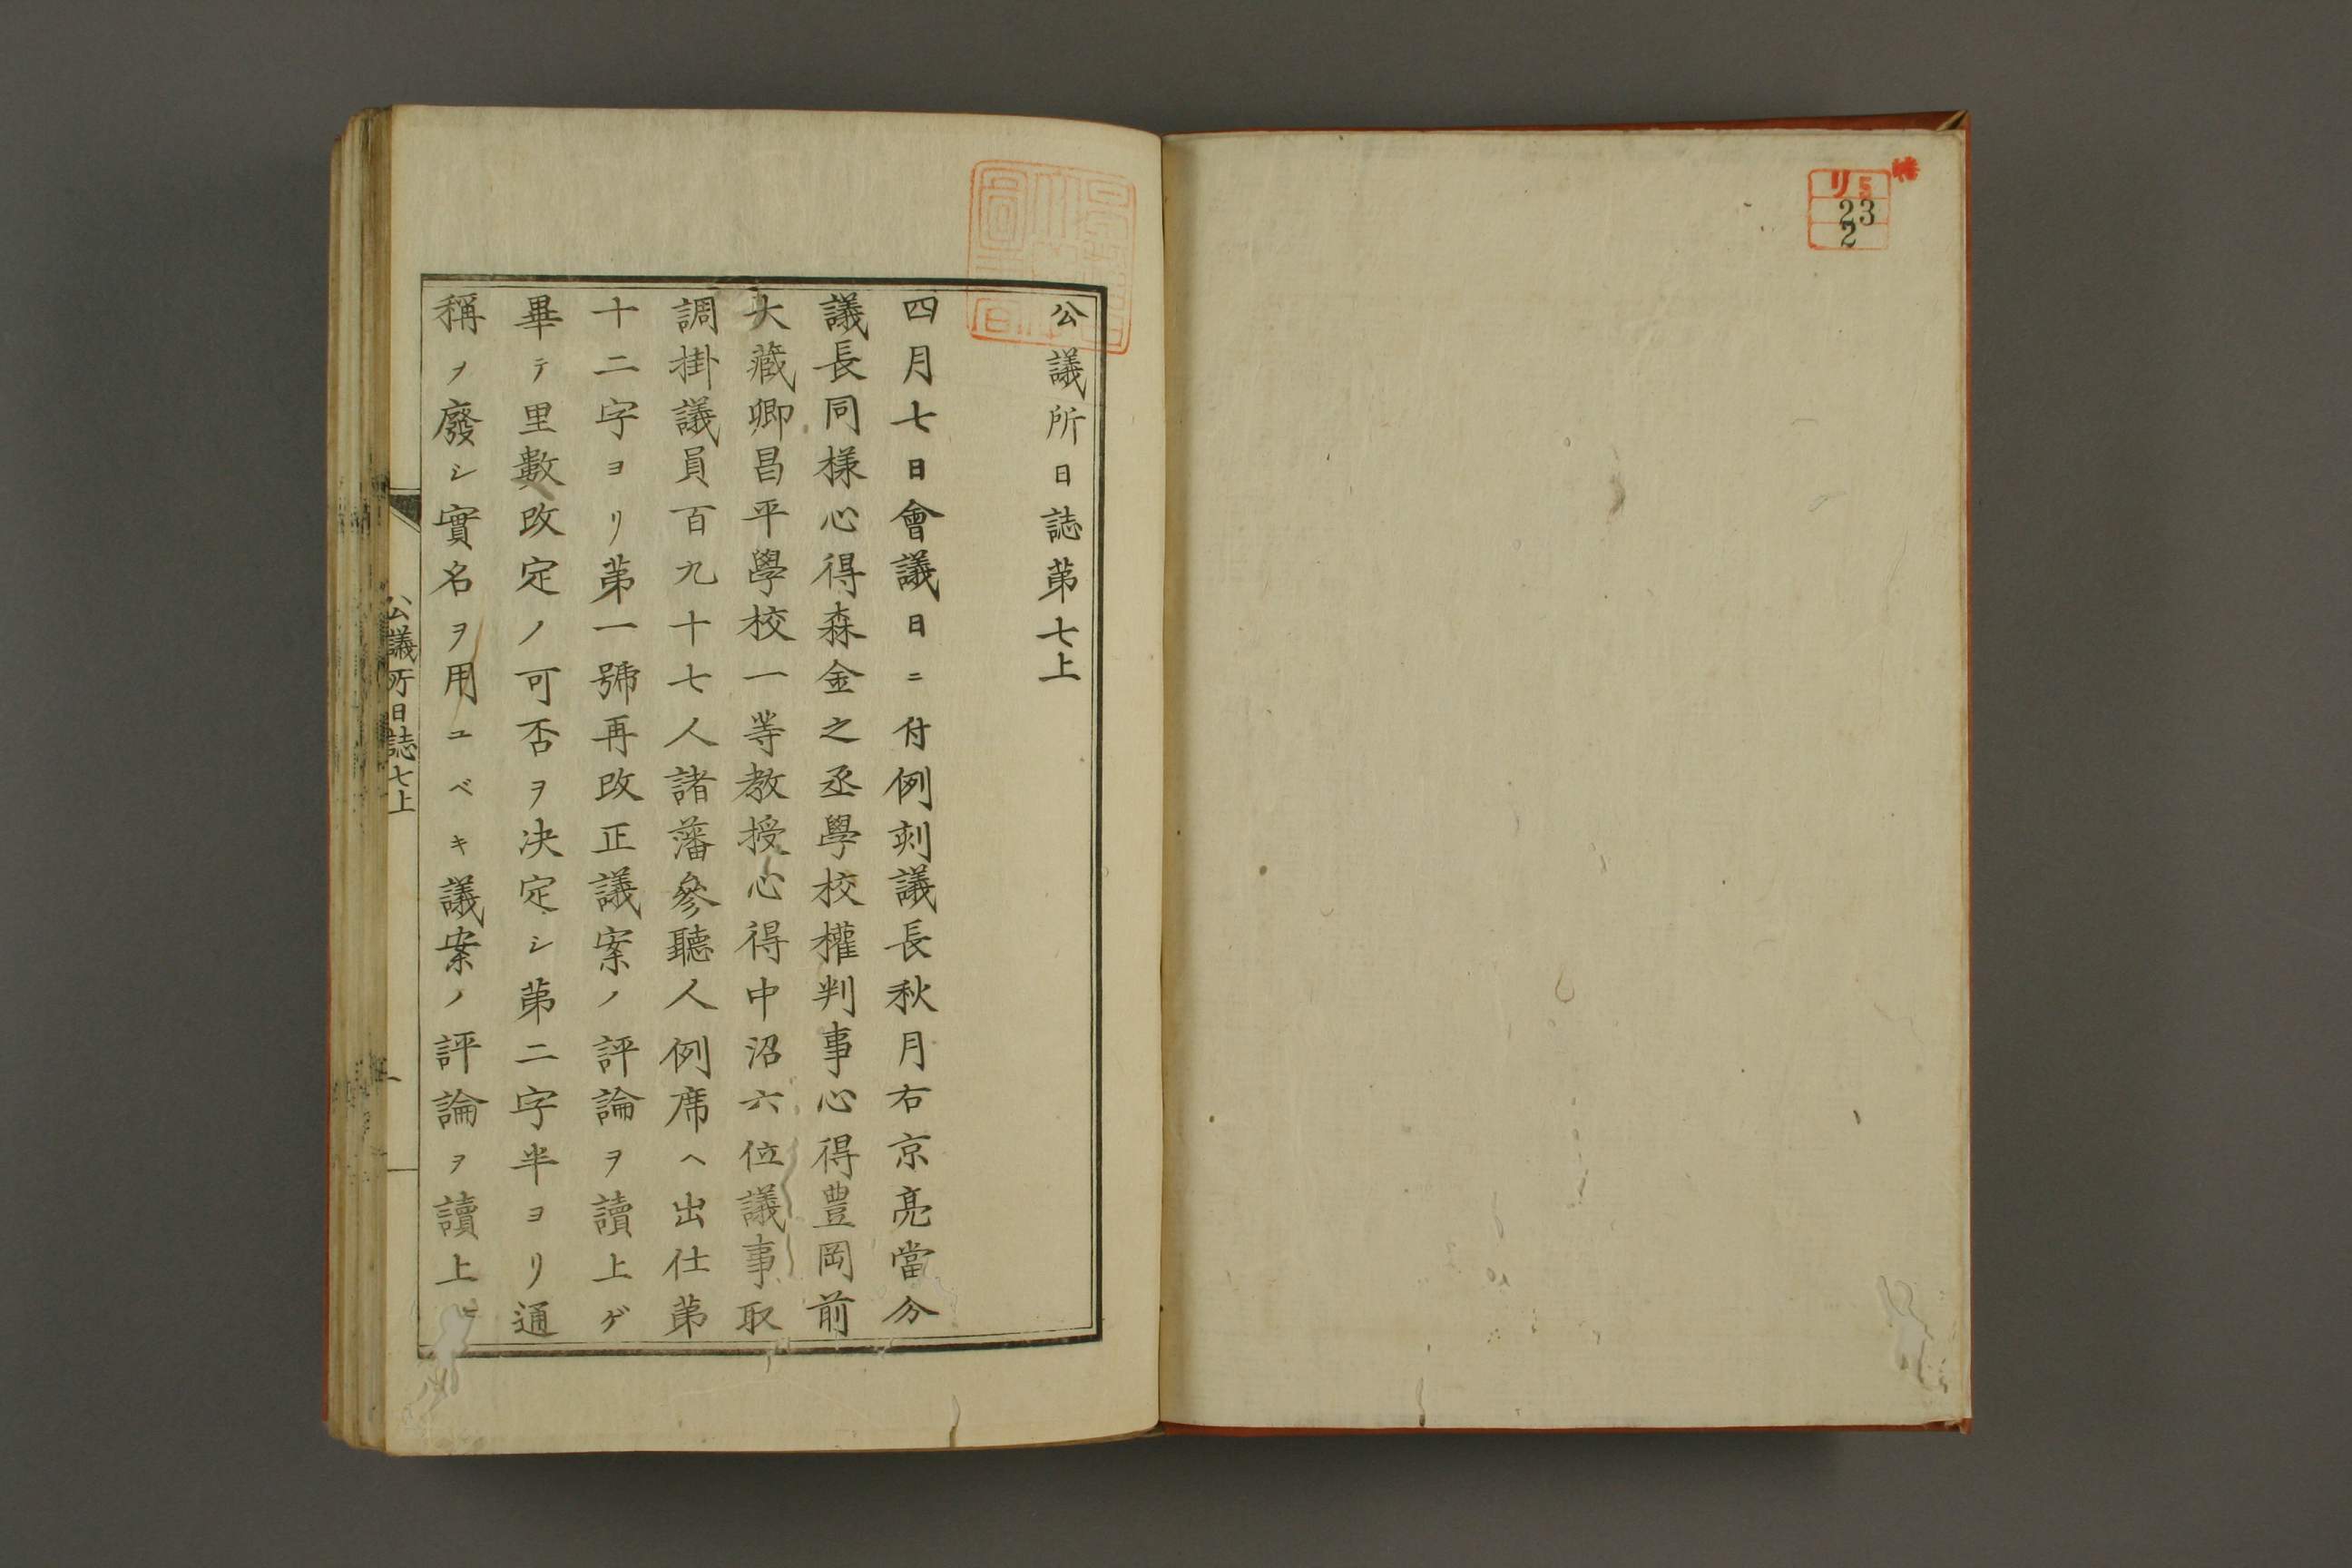 リ5
23
2
公議所日誌第七上
四月七日會議日ニ付例刻議長秋月右京亮當分
議長同樣心得森金之丞學校權判事心得豊岡前
大藏卿昌平學校一等教授心得中沼六位議事取
調掛議員百九十七人諸藩參聽人例席ヘ出仕第
十二字ヨリ第一號再改正議案ノ評論ヲ讀上ゲ
畢テ里數改定ノ可否ヲ决定シ第二字半ヨリ通
稱ヲ廢シ實名ヲ用ユベキ議案ノ評論ヲ讀上ニ
公議所日誌七上